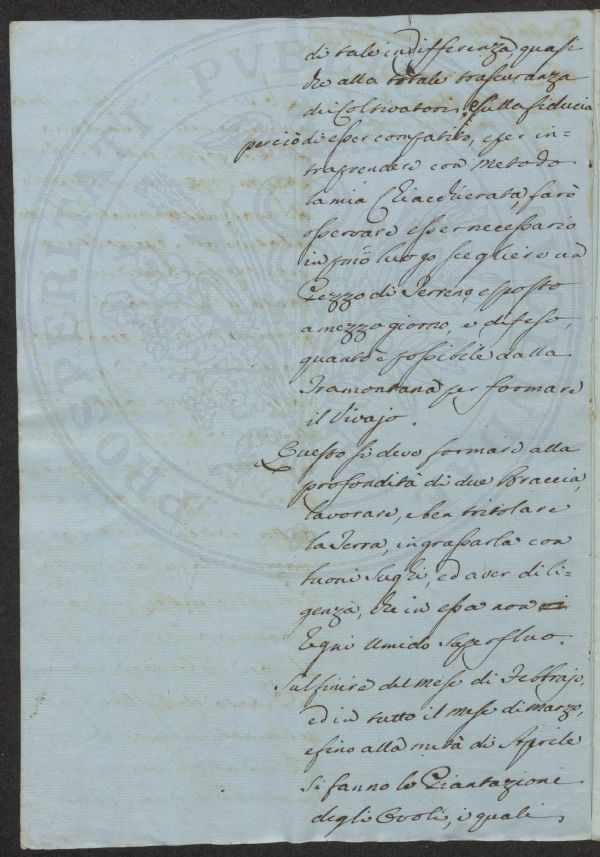 di tale indifferenza quasi
che alla totale trascuranza
dei Coltivatori. Sulla fiducia
perciò di esser compatito, e per in=
traprendere con Metodo
la mia Chiacchierata, farò
osservare esser necessario
in pmo luogo scegliere un
Pezzo di Terreno esposto
a mezzo giorno, e difeso,
quanto è possibile dalla
Tramontana per formare
il Vivajo.
Questo si deve formare alla
profondità di due Braccia,
lavorare, e ben tritolare
la Terra, ingrassarla con
buoni Sughi, ed aver dili=
genza, che in essa non
regni Umido Superfluo.
Sul finire del Mese di Febbrajo,
ed in tutto il Mese di Marzo,
e fino alla metà di Aprile
si fanno le Piantazioni
degli Ovoli, i quali
PROSPERITATI PVB